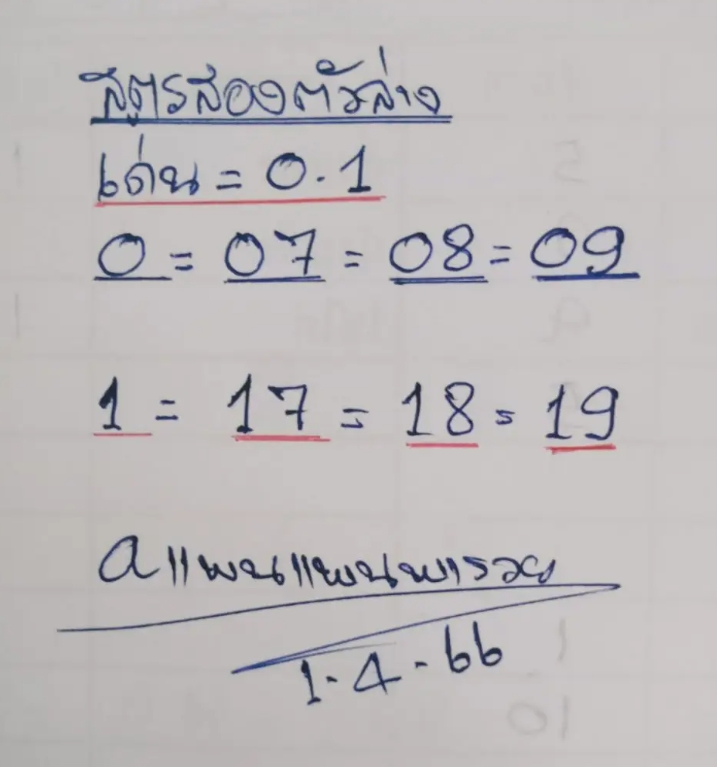 สูตรสองตัวล่าง
เด่น = 0.1
0 = 07 = 08 = 09
1 = 17 = 18 = 19
aแพนแพนพารวย
1-4-66